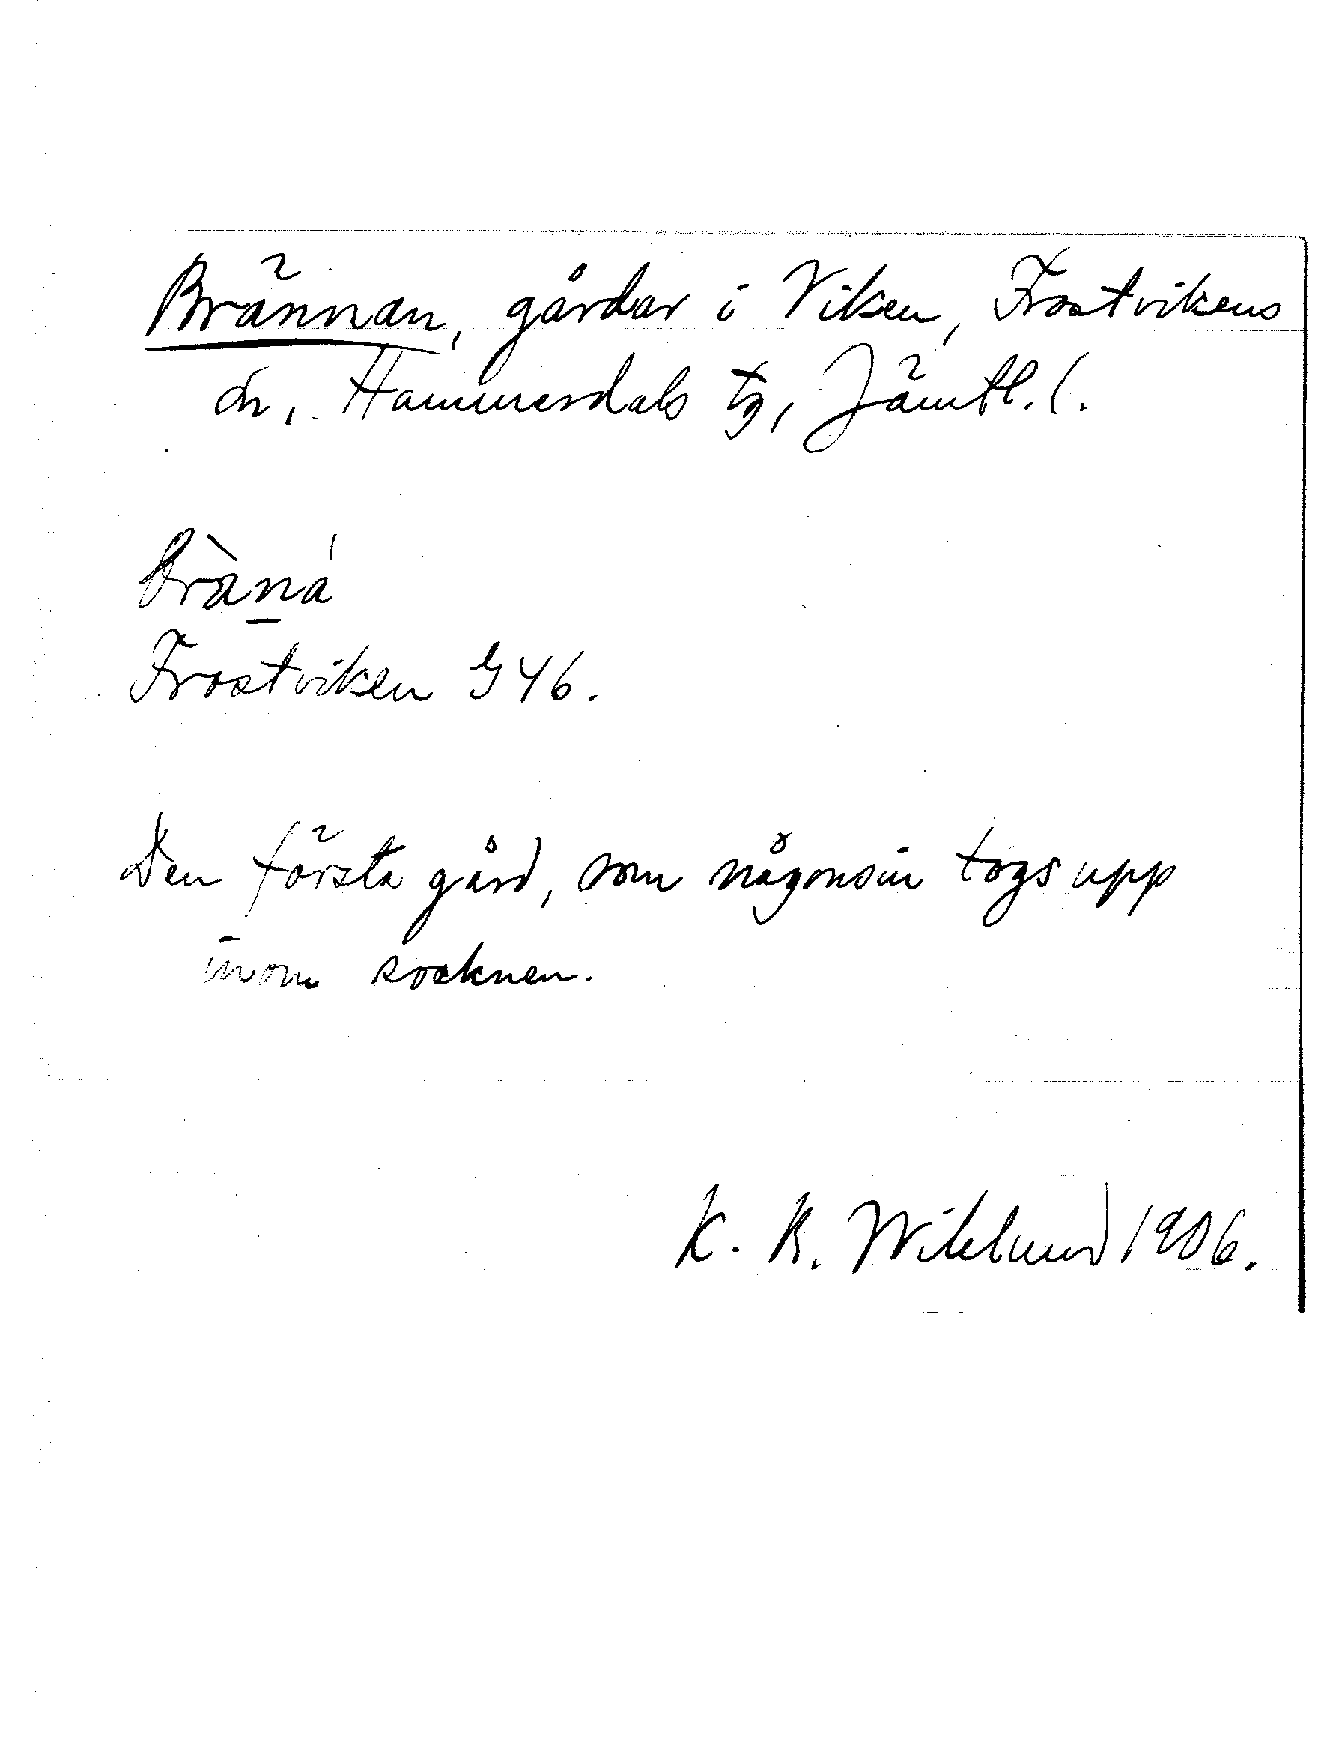 Brännan, gårdar i Viken, Frostvikens
sn, Hammerdals tg, Jämtl. l.
bràná
Frostviken G 46.
Den första gård, som någonsin togs upp
inom socknen.
K. B. Wiklund 1906.